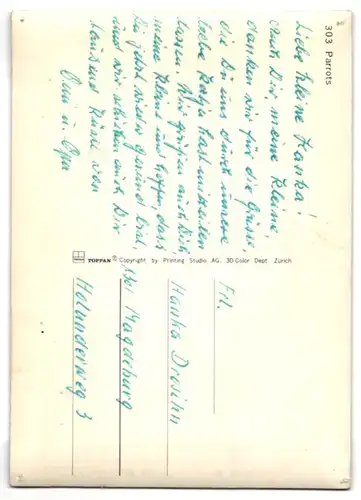 303 Parrots
Liebe kleine Hanka!
Auch Dir meine Kleine,
danken wir für die Grüsse,
die Du uns durch unsere
liebe Katja hast mitteilen
lassen. Wir grüßen auch Dich,
meine Kleine und hoffen das
Du jetzt wieder gesund bist,
und wir schicken auch Dir
tausend Küsse von
Omi u. Opa
TOPPAN © Copyright by Printing Studio AG. 3D-Color Dept. Zürich
Frl.
Hanka Drosihn
bei Magdeburg
Holunderweg 3